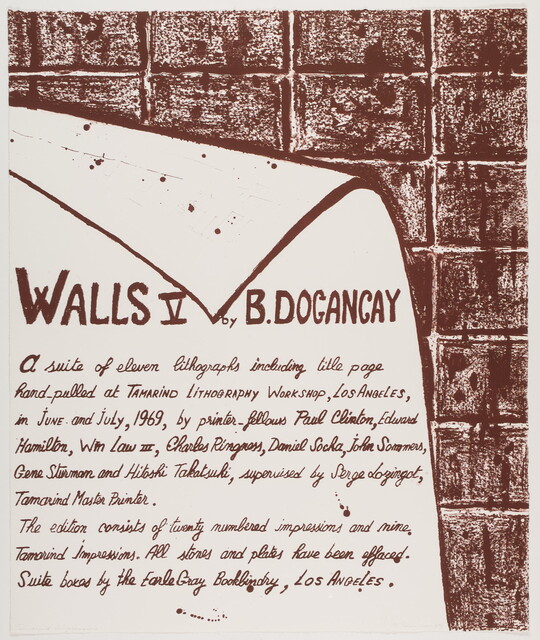 WALLS V by B. DOGANCAY
a suite of eleven lithographs including title page
hand-pulled at TAMARIND LITHOGRAPHY WORKSHOP, LOS ANGELES,
in JUNE and july, 1969, by printer-fellows Paul Clinton, Edward
Hamilton, Wm Law III, Charles Ringness, Daniel Socha, John Sommers,
Gene Sturman and Hitoshi Takatsuki, supervised by Serge Lozingot,
Tamarind Master Printer.
The edition consists of twenty numbered impressions and nine
Tamarind Impressions. All stones and plates have been effaced.
Suite boxes by the Earle Gray Bookbindry, LOS ANGELES.